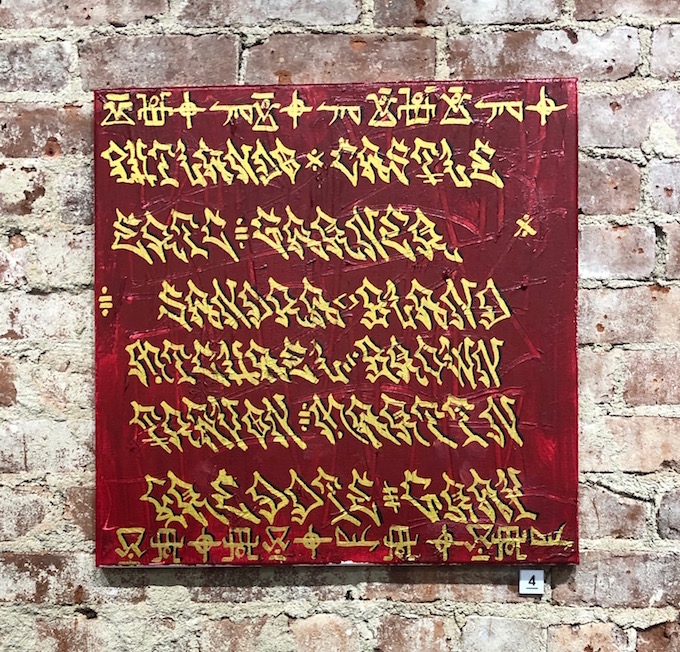 PHILANDO × CASTILE
ERIC = GARNER
SANDRA BLAND
MICHAEL BROWN
TRAYVON = MARTIN
FREDDIE = GRAY
4